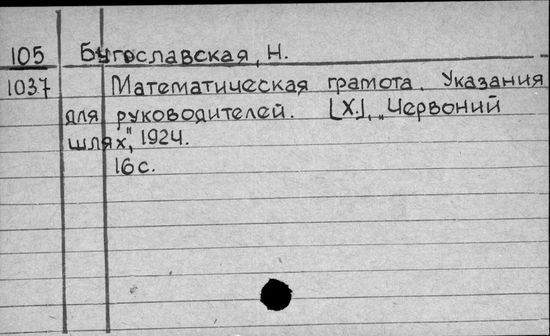 105 Бугославская, Н.
1037 Математическая грамота. Указания
для руководителей. [Х.], „Червоний
шлях", 1924.
16 с.